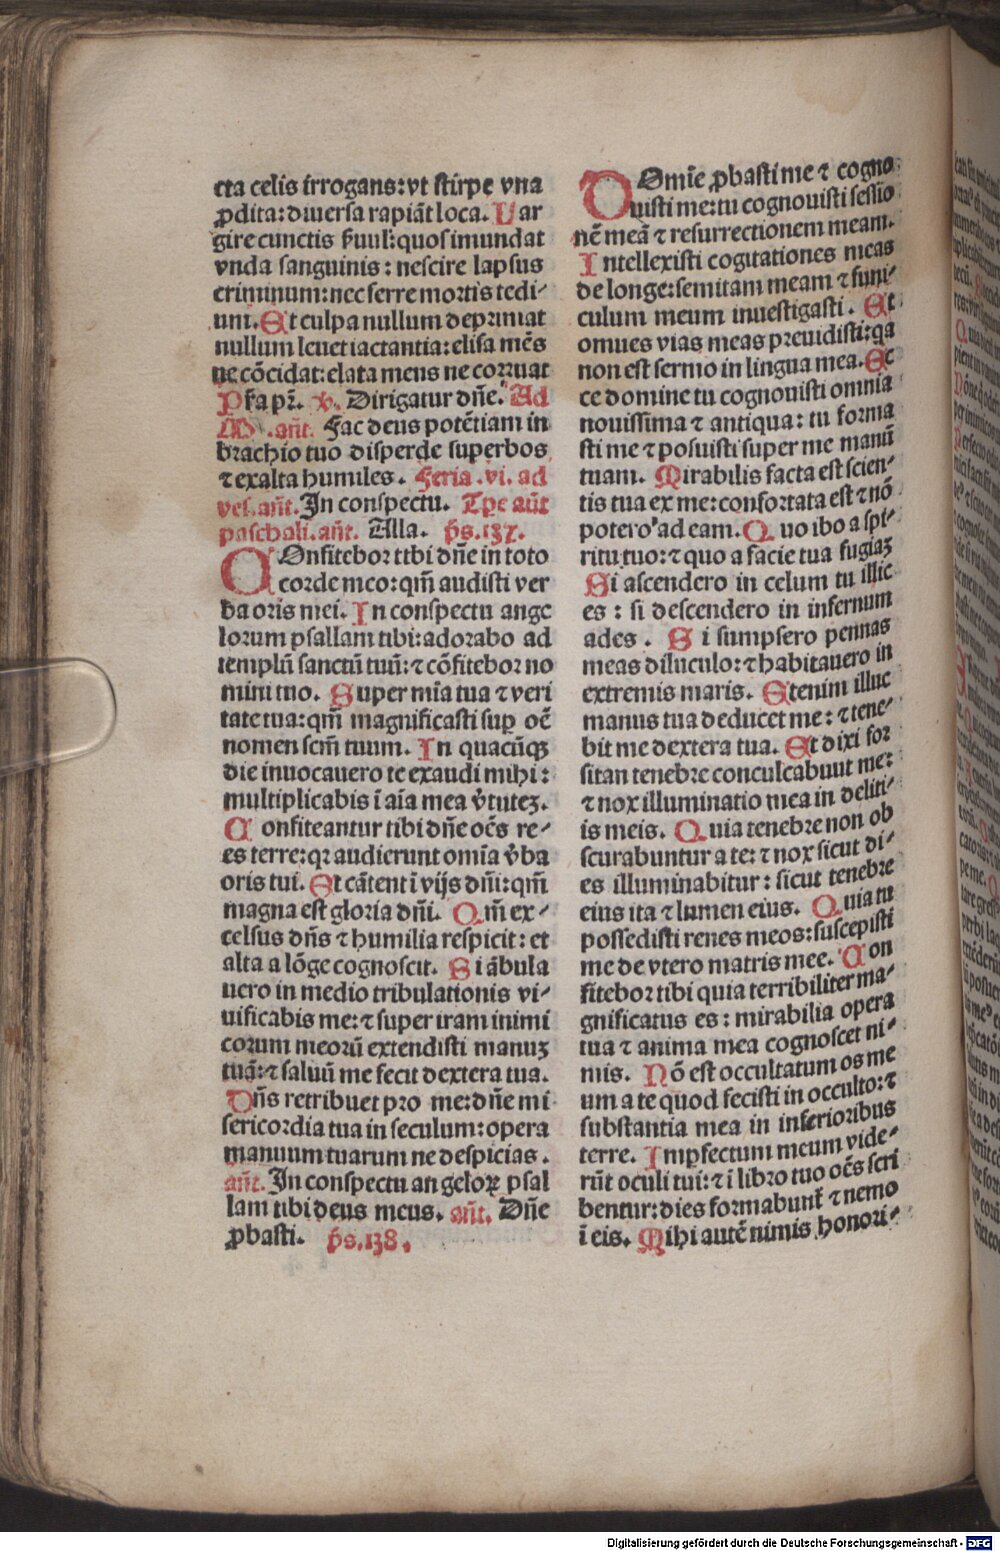 cta celis irrogans: vt stirpe vna
ꝓdita: diuersa rapiāt loca. Lar
gire cunctis ẜuul: quos mundat
vnda sanguinis: nescire lapsus
criminum: nec ferre mortis tedi⸗
um. Et culpa nullum deprimat
nullum leuet iactantia: elisa mēs
ne cōcidat: elata mens ne corruat
Pr̄a pr̄. ꝟ. Dirigatur dn̄e. Ad
M .an̄t. Fac deus potētiam in
brachio tuo disperde superbos
⁊ exalta humiles. Feria .vi. ad
ves. an̄t. In conspectu. Tp̄e aūt
paschali. an̄t. Alla. p̄s. 137.
COnfitebor tibi dn̄e in toto
corde meo: qm̄ audisti ver
ba oris mei. In conspectu ange
lorum psallam tibi: adorabo ad
templū sanctū tuū: ⁊ cōfitebor no
mini tuo. Super mīa tua ⁊ veri
tate tua: qm̄ magnificasti suꝑ oē
nomen scm̄ tuum. In quacūqꝫ
die inuocauero te exaudi mihi:
multiplicabis ī aīa mea v̄tuteꝫ.
Confiteantur tibi dn̄e oēs re⸗
es terre: qꝛ audierunt omīa v̄ba
oris tui. Et cātent ī vijs dn̄i: qm̄
magna est gloria dn̄i. Qm̄ ex⸗
celsus dn̄s ⁊ humilia respicit: et
alta a lōge cognoscit. Si ābula
uero in medio tribulationis vi⸗
uificabis me: ⁊ super iram inimi
corum meorū extendisti manuꝫ
tuā: ⁊ saluū me fecit dextera tua.
Dn̄s retribuet pro me: dn̄e mi
sericordia tua in seculum: opera
manuum tuarum ne despicias.
an̄t. In conspectu angeloꝝ psal
lam tibi deus meus. an̄t. Dn̄e
ꝓbasti. p̄s. 138.
DOmīe ꝓbasti me ⁊ cogno
uisti me: tu cognouisti sessio
nē meā ⁊ resurrectionem meam.
Intellexisti cogitationes meas
de longe: semitam meam ⁊ funi⸗
culum meum inuestigasti. Et
omues vias meas preuidisti: qa
non est sermo in lingua mea. Ec
ce domine tu cognouisti omnia
nouissima ⁊ antiqua: tu forma
sti me ⁊ posuisti super me manū
tuam. Mirabilis facta est scien⸗
tia tua ex me: confortata est ⁊ nō
potero ad eam. Quo ibo a spi⸗
ritu tuo: ⁊ quo a facie tua fugiaꝫ
Si ascendero in celum tu illic
es: si descendero in infernum
ades. Si sumpsero pennas
meas diluculo: ⁊ habitauero in
extremis maris. Etenim illuc
manus tua deducet me: ⁊ tene⸗
bit me dextera tua. Et dixi for
sitan tenebre conculcabuut me:
⁊ nox illuminatio mea in deliti⸗
is meis. Quia tenebre non ob
scurabuntur a te: ⁊ nox sicut di⸗
es illuminabitur: sicut tenebre
eius ita ⁊ lumen eius. Quia tu
possedisti renes meos: suscepisti
me de vtero matris mee. Con
fitebor tibi quia terribiliter ma⸗
gnificatus es: mirabilia opera
tua ⁊ anima mea cognoscet ni⸗
mis. Nō est occultatum os me
um a te quod fecisti in occulto: ⁊
substantia mea in inferioribus
terre. Imperfectum meum vide⸗
rūt oculi tui: ⁊ ī libro tuo oēs scri
bentur: dies formabunt̄ ⁊ nemo
ī eis. Mihi autē nimis honori⸗
Digitalisierung gefördert durch die Deutsche Forschungsgemeinschaft - DFG